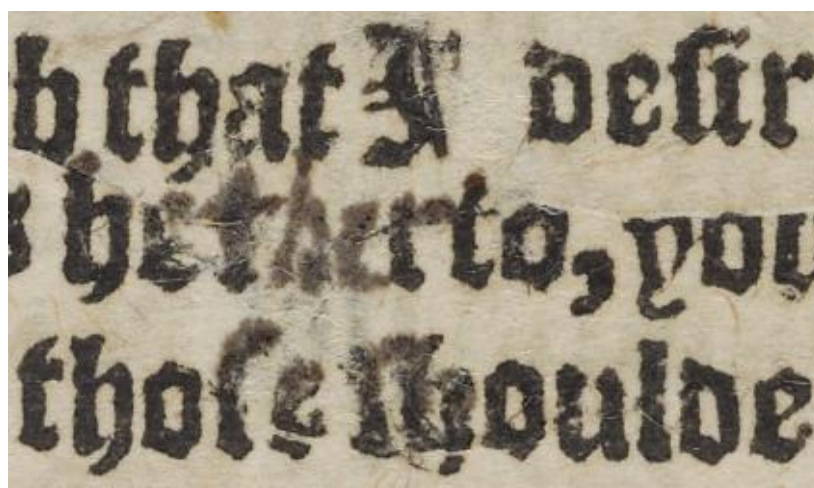 h that I desir
s hetherto, you
those shoulde